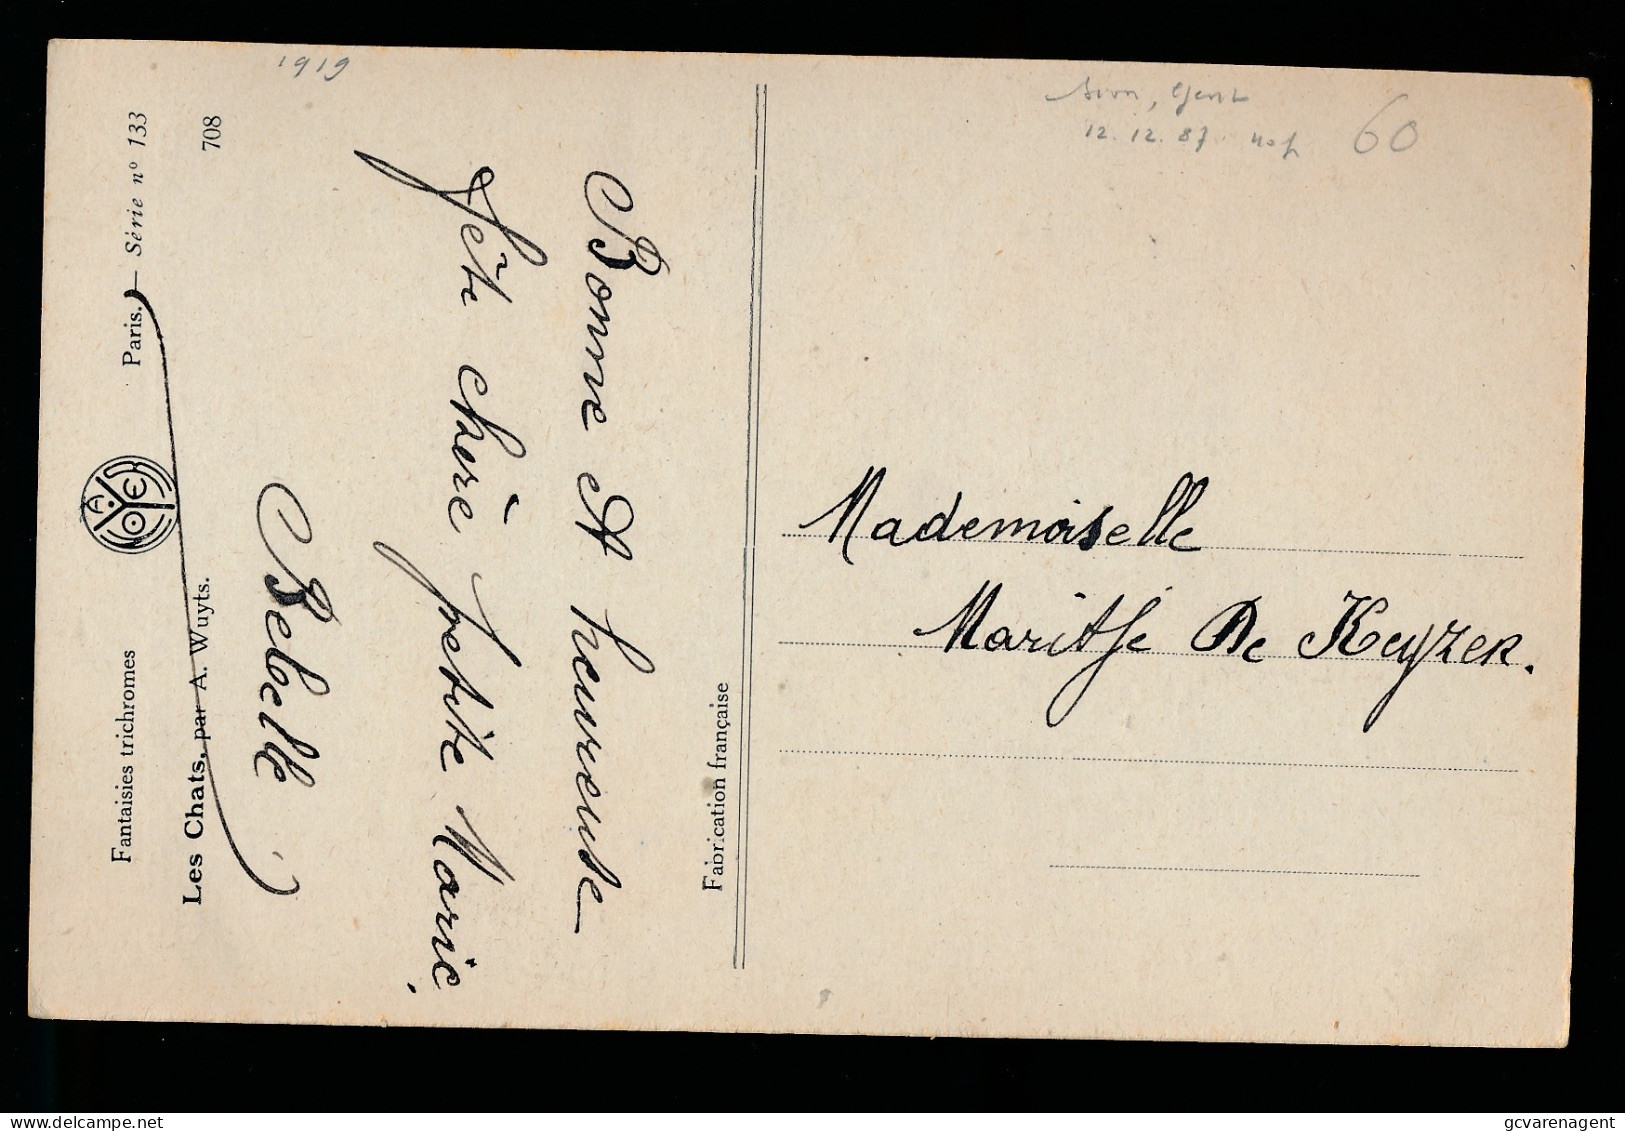 1919
Fantaisies trichromes
Paris. — Série nº 133
Les Chats, par A. Wuyts.
708
Bonne et heureuse
fête chère petite Marie,
Bebelle
Fabrication française
Gent
12.12.87 60
Mademoiselle
Maritje De Keyzer.
gcvarenagent